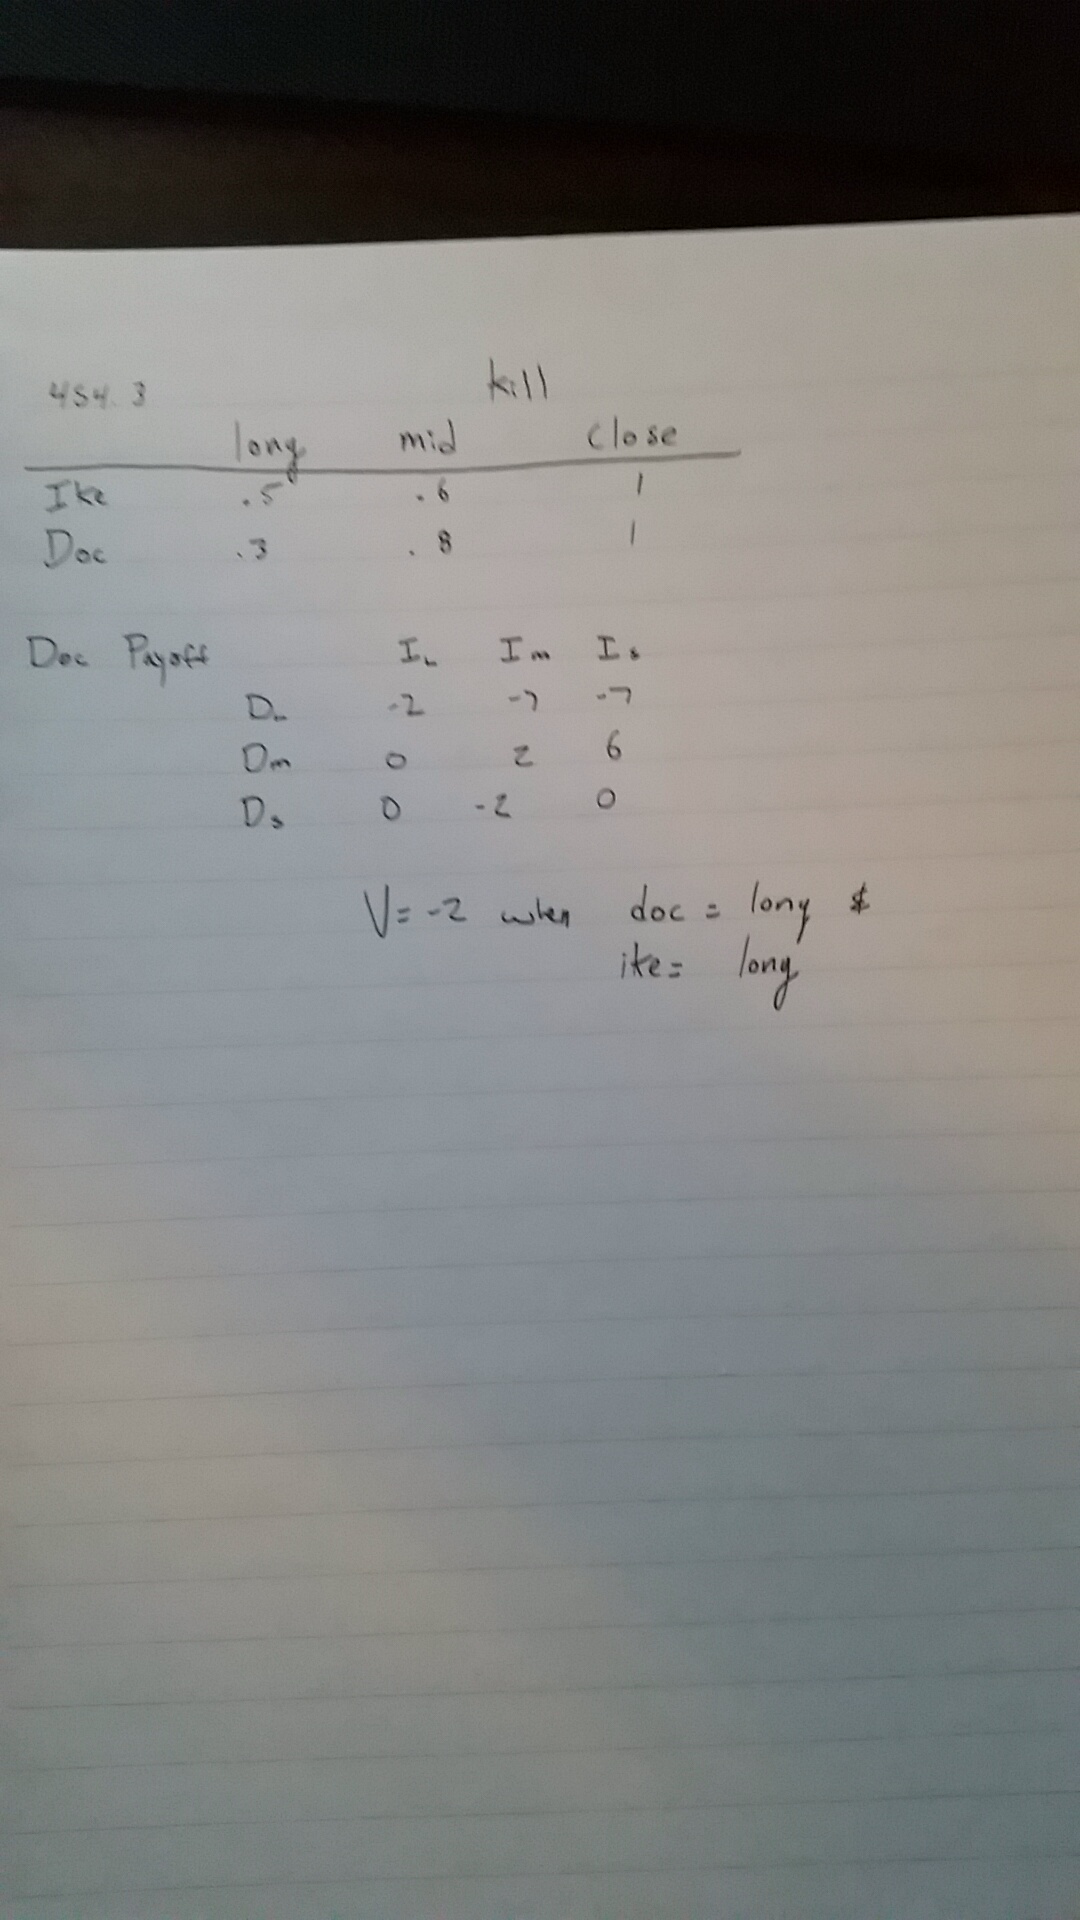 454.3 kill
long mid close
Ike .5 .6 1
Doc .3 .8 1
Doc Payoff IL Im Is
DL -2 -7 -7
Dm 0 2 6
Ds 0 -2 0
V=-2 when doc = long &
ike= long